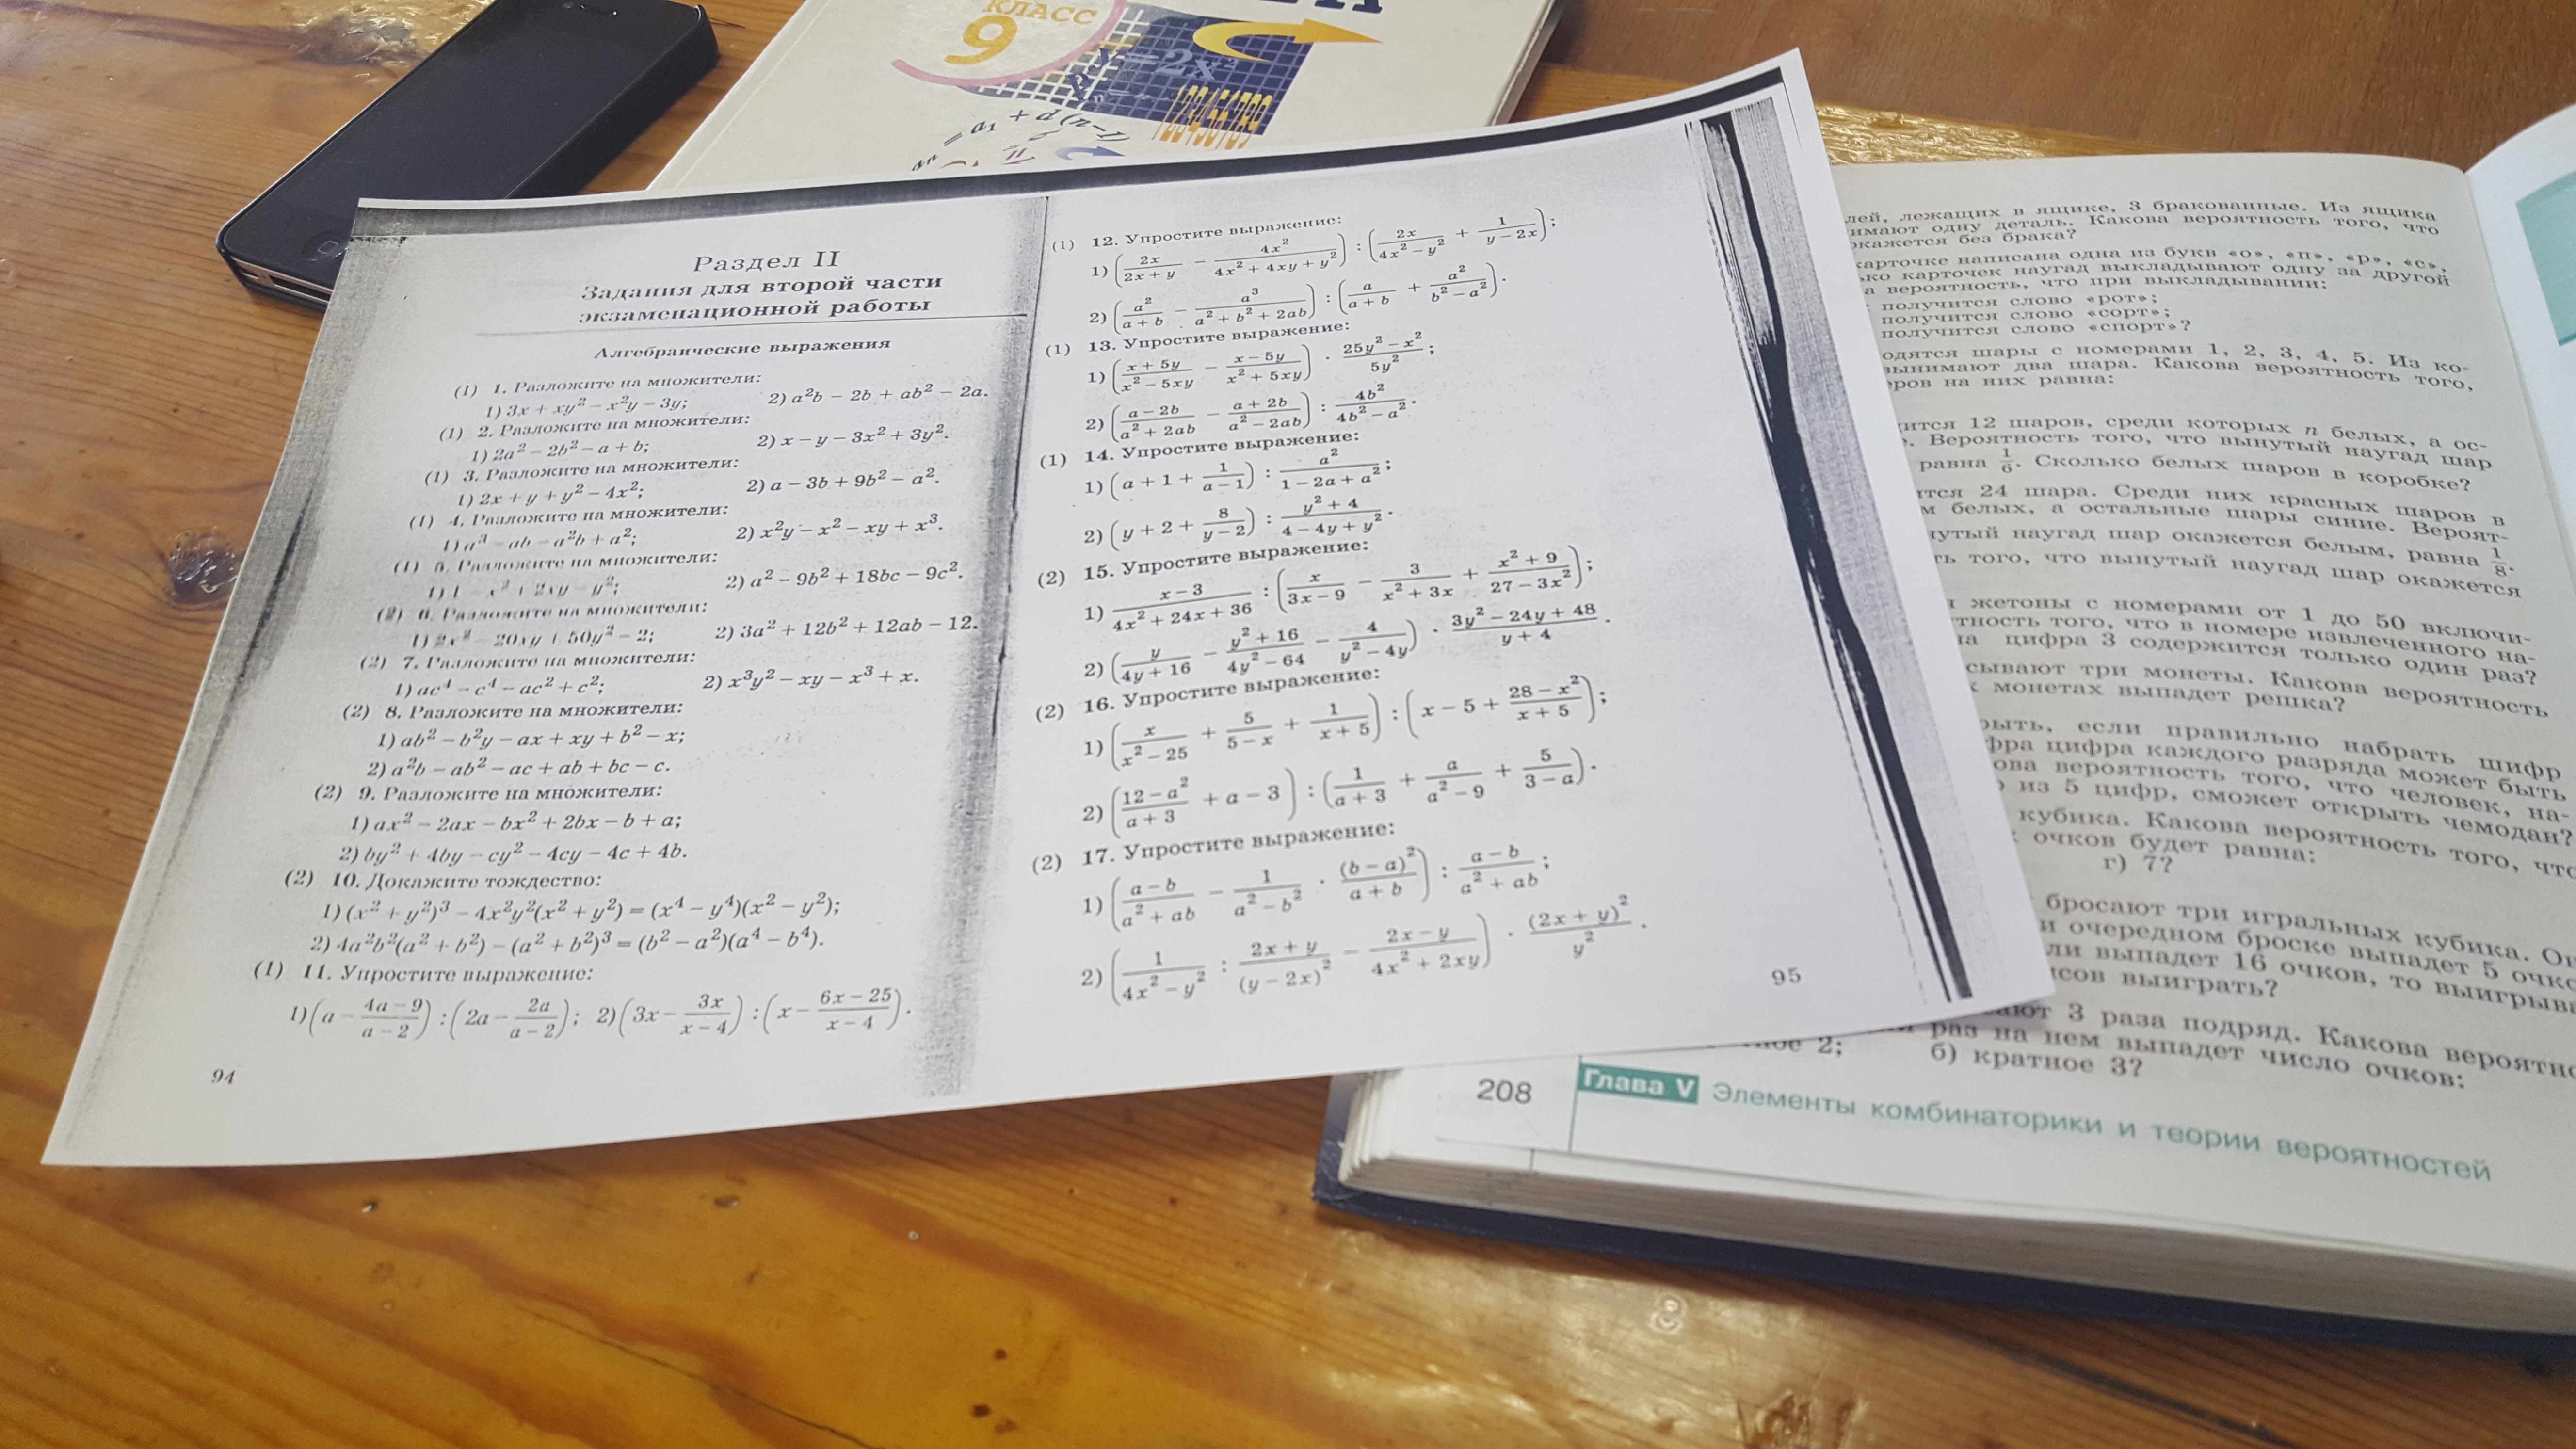 КЛАСС
9
y=2x²
123456789
= a₁ + d(n−1)
Раздел II
Задания для второй части
экзаменационной работы
Алгебраические выражения
(1) 1. Разложите на множители:
1) 3x + xy² − x²y − 3y; 2) a²b − 2b + ab² − 2a.
(1) 2. Разложите на множители:
1) 2a² − 2b² − a + b; 2) x − y − 3x² + 3y².
(1) 3. Разложите на множители:
1) 2x + y + y² − 4x²; 2) a − 3b + 9b² − a².
(1) 4. Разложите на множители:
1) a³ − ab − a²b + a²; 2) x²y − x² − xy + x³.
(1) 5. Разложите на множители:
1) 1 − x² + 2xy − y²; 2) a² − 9b² + 18bc − 9c².
(2) 6. Разложите на множители:
1) 2x² − 20xy + 50y² − 2; 2) 3a² + 12b² + 12ab − 12.
(2) 7. Разложите на множители:
1) ac⁴ − c⁴ − ac² + c²; 2) x³y² − xy − x³ + x.
(2) 8. Разложите на множители:
1) ab² − b²y − ax + xy + b² − x;
2) a²b − ab² − ac + ab + bc − c.
(2) 9. Разложите на множители:
1) ax² − 2ax − bx² + 2bx − b + a;
2) by² + 4by − cy² − 4cy − 4c + 4b.
(2) 10. Докажите тождество:
1) (x² + y²)³ − 4x²y²(x² + y²) = (x⁴ − y⁴)(x² − y²);
2) 4a²b²(a² + b²) − (a² + b²)³ = (b² − a²)(a⁴ − b⁴).
(1) 11. Упростите выражение:
1) (a − (4a − 9)/(a − 2)) : (2a − 2a/(a − 2)); 2) (3x − 3x/(x − 4)) : (x − (6x − 25)/(x − 4)).
94
(1) 12. Упростите выражение:
1) (2x/(2x + y) − 4x²/(4x² + 4xy + y²)) : (2x/(4x² − y²) + 1/(y − 2x));
2) (a²/(a + b) − a³/(a² + b² + 2ab)) : (a/(a + b) + a²/(b² − a²)).
(1) 13. Упростите выражение:
1) ((x + 5y)/(x² − 5xy) − (x − 5y)/(x² + 5xy)) · (25y² − x²)/(5y²);
2) ((a − 2b)/(a² + 2ab) − (a + 2b)/(a² − 2ab)) : 4b²/(4b² − a²).
(1) 14. Упростите выражение:
1) (a + 1 + 1/(a − 1)) : a²/(1 − 2a + a²);
2) (y + 2 + 8/(y − 2)) : (y² + 4)/(4 − 4y + y²).
(2) 15. Упростите выражение:
1) (x − 3)/(4x² + 24x + 36) : (x/(3x − 9) − 3/(x² + 3x) + (x² + 9)/(27 − 3x²));
2) (y/(4y + 16) − (y² + 16)/(4y² − 64) − 4/(y² − 4y)) · (3y² − 24y + 48)/(y + 4).
(2) 16. Упростите выражение:
1) (x/(x² − 25) + 5/(5 − x) + 1/(x + 5)) : (x − 5 + (28 − x²)/(x + 5));
2) ((12 − a²)/(a + 3) + a − 3) : (1/(a + 3) + a/(a² − 9) + 5/(3 − a)).
(2) 17. Упростите выражение:
1) ((a − b)/(a² + ab) − 1/(a² − b²) · (b − a)²/(a + b)) : (a − b)/(a² + ab);
2) (1/(4x² − y²) : (2x + y)/(y − 2x)² − (2x − y)/(4x² + 2xy)) · (2x + y)²/y².
95
лежащих в ящике, 3 бракованные. Из ящика
одну деталь. Какова вероятность того, что
окажется без брака?
карточке написана одна из букв «о», «п», «р», «с»,
карточек наугад выкладывают одну за другой
вероятность, что при выкладывании:
получится слово «рот»;
получится слово «сорт»;
получится слово «спорт»?
шары с номерами 1, 2, 3, 4, 5. Из ко-
вынимают два шара. Какова вероятность того,
на них равна:
12 шаров, среди которых n белых, а ос-
Вероятность того, что вынутый наугад шар
равна 1/6. Сколько белых шаров в коробке?
24 шара. Среди них красных шаров в
белых, а остальные шары синие. Вероят-
шар окажется белым, равна 1/8.
того, что вынутый наугад шар окажется
жетоны с номерами от 1 до 50 включи-
того, что в номере извлеченного на-
цифра 3 содержится только один раз?
три монеты. Какова вероятность
монетах выпадет решка?
если правильно набрать шифр
цифра каждого разряда может быть
вероятность того, что человек, на-
из 5 цифр, сможет открыть чемодан?
кубика. Какова вероятность того, что
очков будет равна:
г) 7?
бросают три игральных кубика.
очередном броске выпадет 5
выпадет 16 очков, то
выиграть?
3 раза подряд. Какова
раз на нем выпадет число очков:
2; б) кратное 3?
208 Глава V Элементы комбинаторики и теории вероятностей